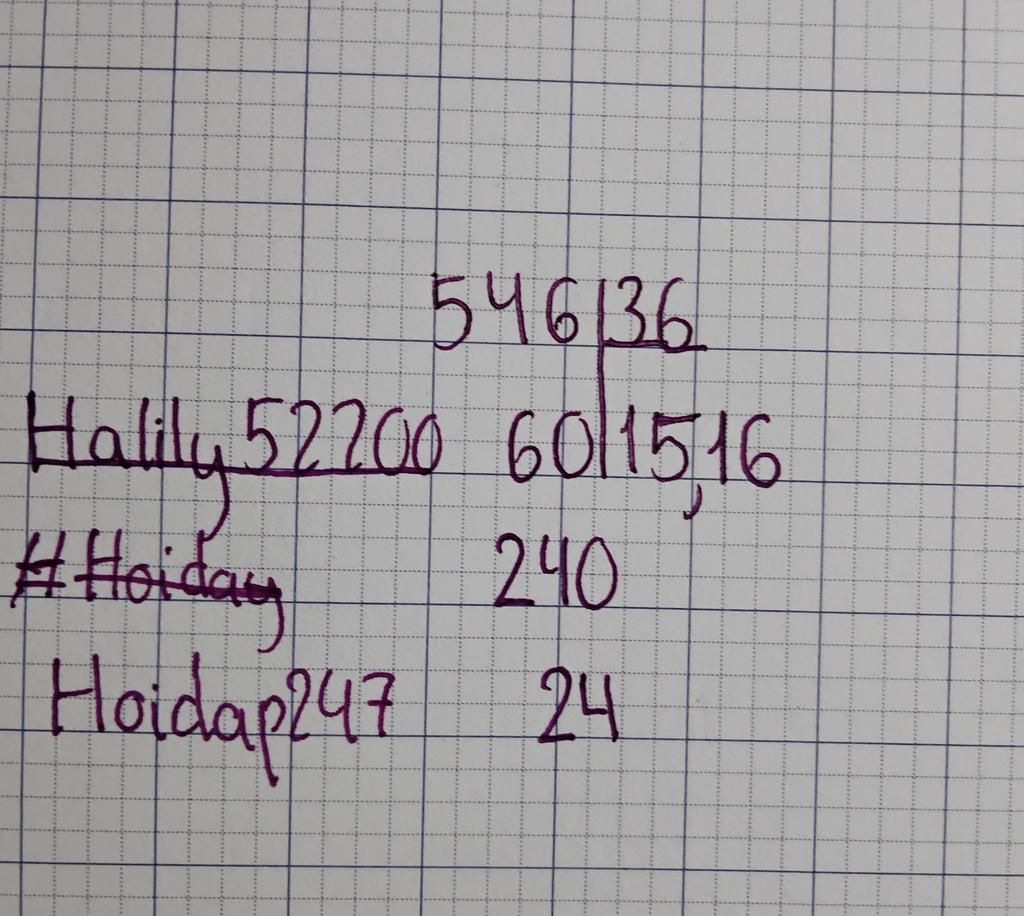 546 36
Halily52200 60 15,16
# Hoiday 240
Hoidap247 24